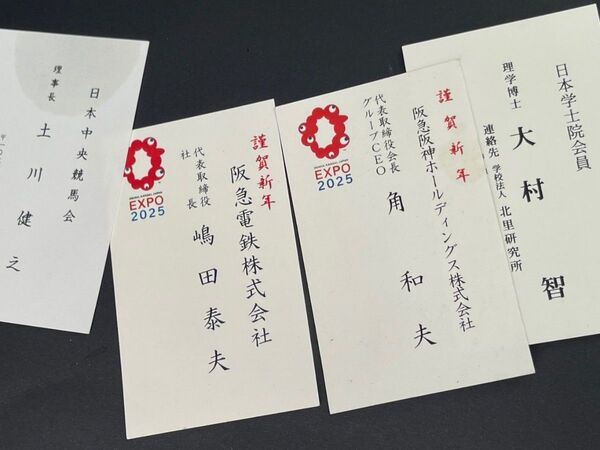 日本中央競馬会
理事長 土川健之
謹賀新年
阪急電鉄株式会社
代表取締役
社長 嶋田泰夫
OSAKA, KANSAI, JAPAN
EXPO
2025
謹賀新年
阪急阪神ホールディングス株式会社
代表取締役会長
グループCEO 角和夫
OSAKA, KANSAI, JAPAN
EXPO
2025
日本学士院会員
理学博士 大村智
連絡先 学校法人 北里研究所